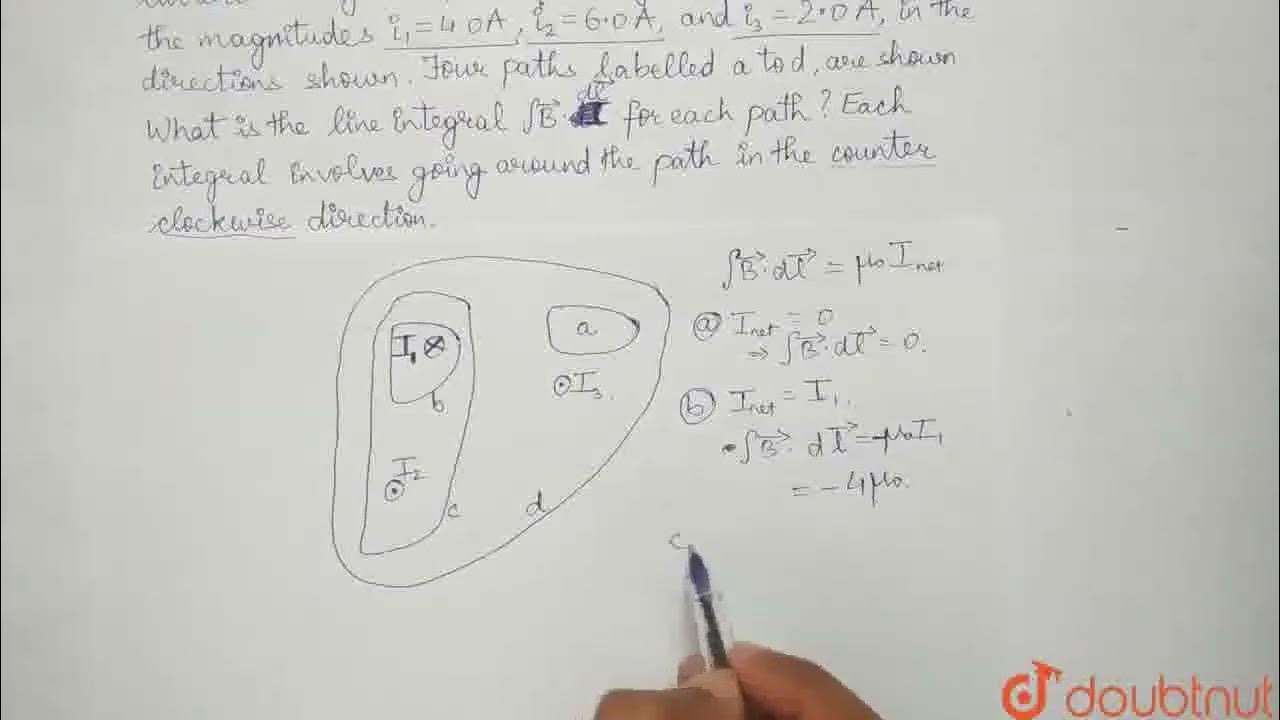 the magnitudes i₁ = 4.0A, i₂ = 6.0A, and i₃ = 2.0A, in the
directions shown. Four paths labelled a to d, are shown
What is the line integral ∫B⃗·dl⃗ for each path? Each
integral involves going around the path in the counter
clockwise direction.
∫B⃗·dl⃗ = μ₀Inet
a
I₁ ⊗
ⓐ Inet = 0
⇒ ∫B⃗·dl⃗ = 0.
⊙ I₃.
b
ⓑ Inet = I₁.
∫B⃗·dl⃗ = -μ₀I₁
I₂
⊙
= -4μ₀.
c
d
c
doubtnut